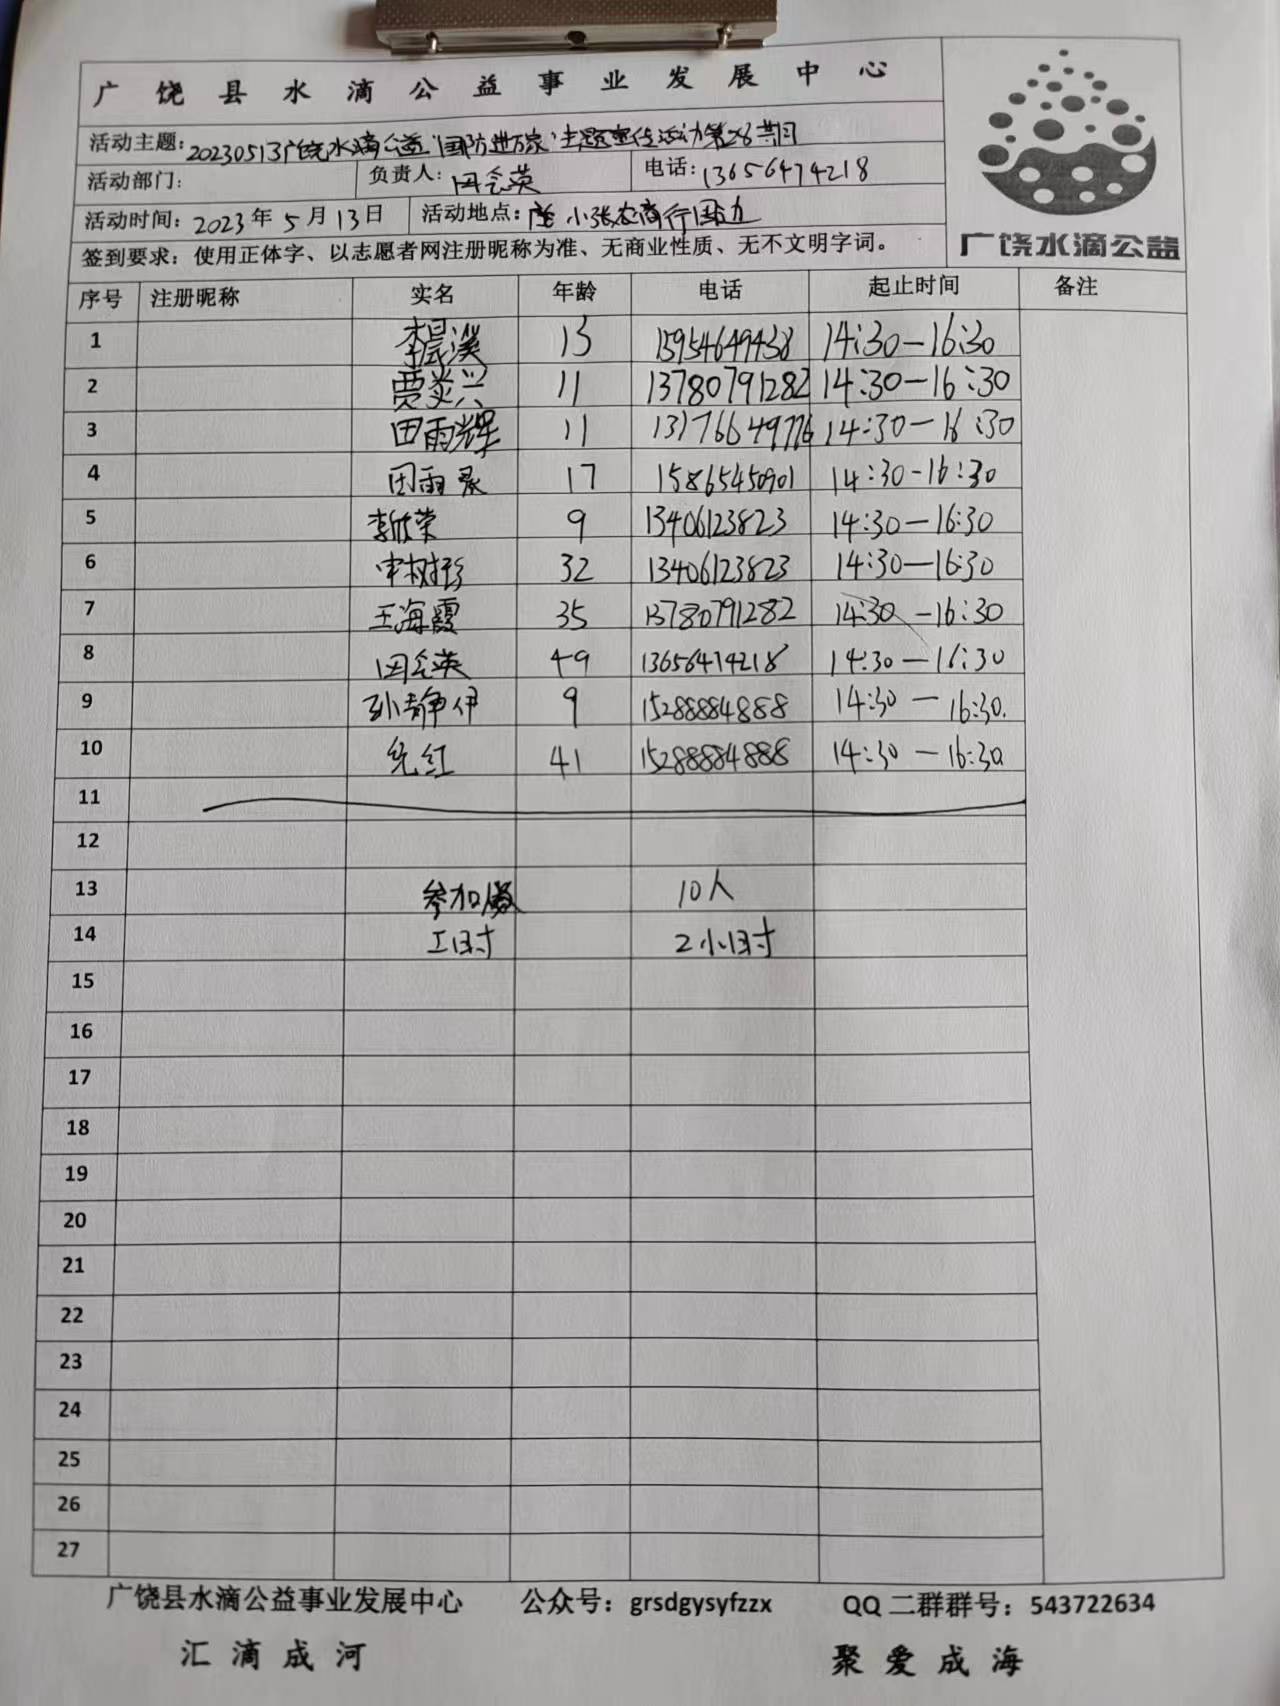 广饶县水滴公益事业发展中心
活动主题：20230513广饶水滴公益"国防进万家"主题宣传活动第28期
广饶水滴公益
活动部门： 负责人：田会英 电话：13656474218
活动时间：2023年5月13日 活动地点：小张农商行周边
签到要求：使用正体字、以志愿者网注册昵称为准、无商业性质、无不文明字词。
序号 注册昵称 实名 年龄 电话 起止时间 备注
1 李晨溪 13 15954649438 14:30—16:30
2 贾炎兴 11 13780791282 14:30—16:30
3 田雨辉 11 13176649776 14:30—16:30
4 田雨 17 15865450901 14:30-16:30
5 李欣荣 9 13406123823 14:30—16:30
6 申树珍 32 13406123823 14:30—16:30
7 王海霞 35 13780791282 14:30—16:30
8 田会英 49 13656474218 14:30—16:30
9 孙静伊 9 15288884888 14:30—16:30.
10 红 41 15288884888 14:30—16:30
11
12
13 参加人数 10人
14 工时 2小时
15
16
17
18
19
20
21
22
23
24
25
26
27
广饶县水滴公益事业发展中心 公众号：grsdgysyfzzx QQ二群群号：543722634
汇滴成河 聚爱成海